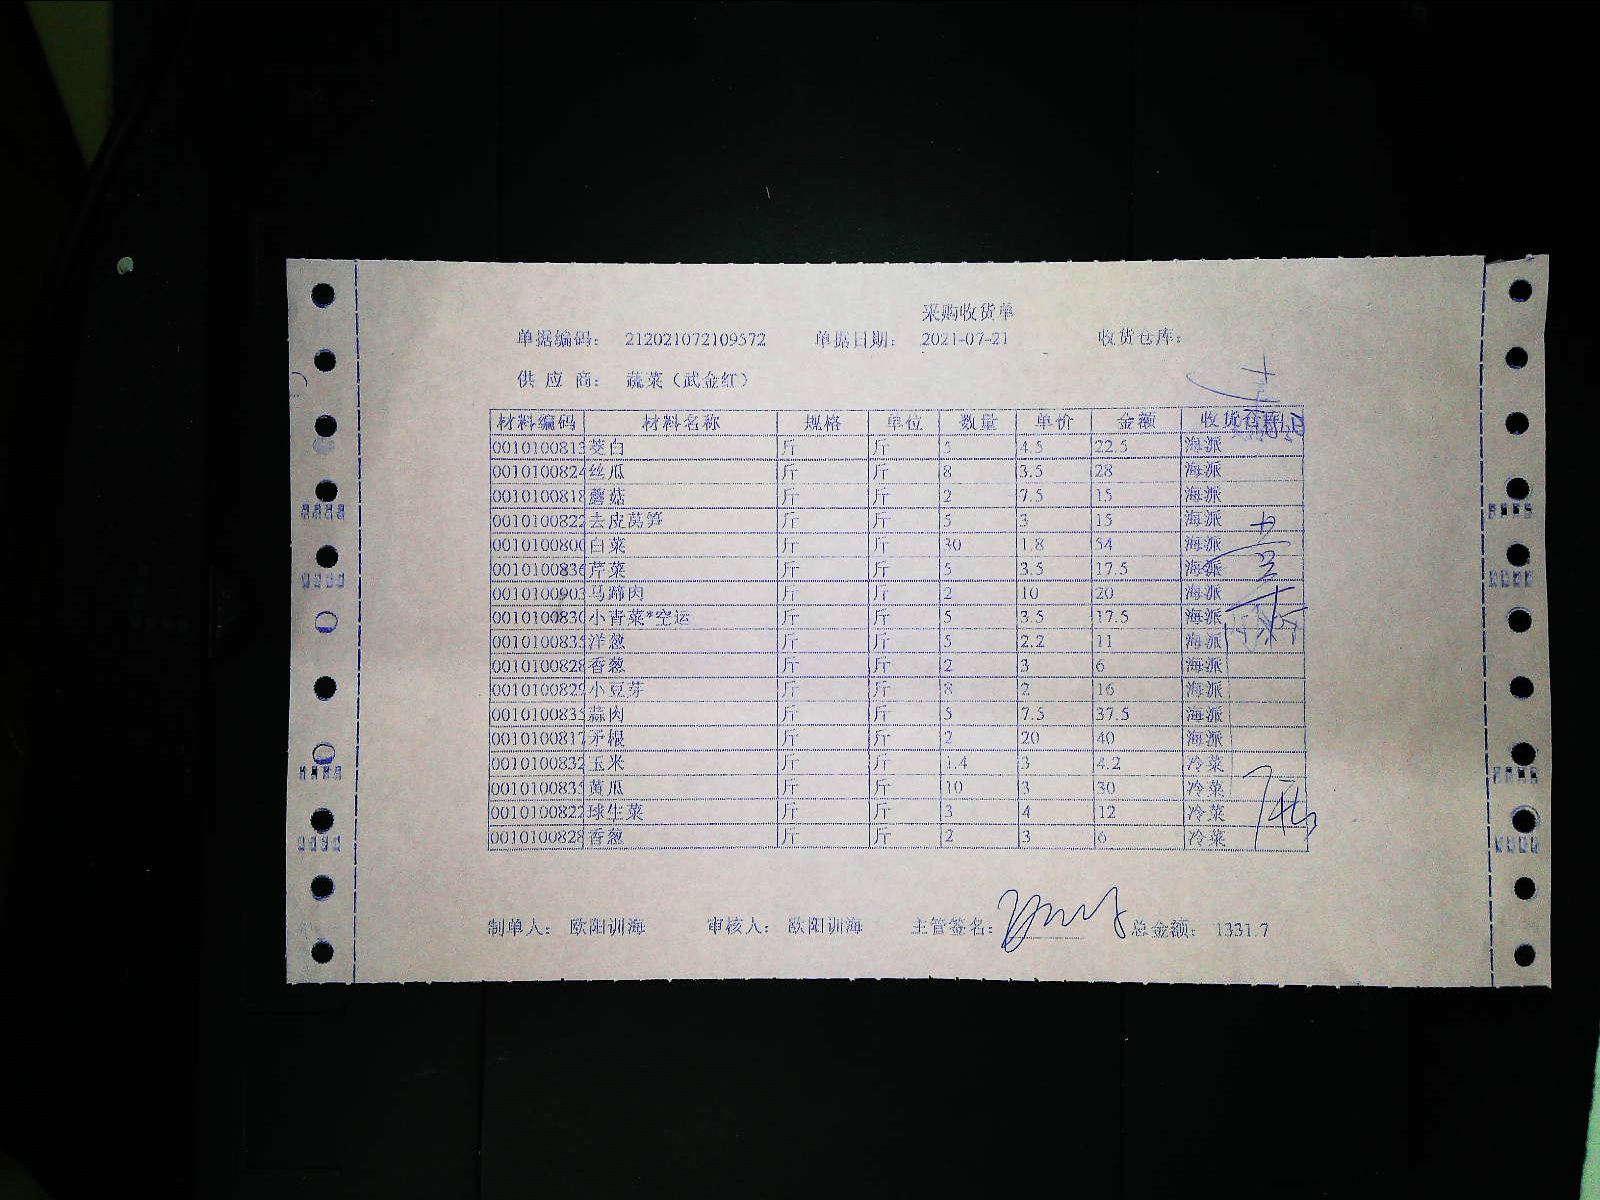 采购收货单
单据编码： 212021072109572 单据日期： 2021-07-21 收货仓库：
供 应 商： 蔬菜（武金红）
材料编码 材料名称 规格 单位 数量 单价 金额 收货仓库
0010100813 茭白 斤 斤 5 4.5 22.5 海派
0010100824 丝瓜 斤 斤 8 3.5 28 海派
0010100818 蘑菇 斤 斤 2 7.5 15 海派
0010100822 去皮莴笋 斤 斤 5 3 15 海派
0010100800 白菜 斤 斤 30 1.8 54 海派
0010100836 芹菜 斤 斤 5 3.5 17.5 海派
0010100903 马蹄肉 斤 斤 2 10 20 海派
0010100830 小青菜*空运 斤 斤 5 3.5 17.5 海派
0010100835 洋葱 斤 斤 5 2.2 11 海派
0010100828 香葱 斤 斤 2 3 6 海派
0010100829 小豆芽 斤 斤 8 2 16 海派
0010100835 蒜肉 斤 斤 5 7.5 37.5 海派
0010100817 矛根 斤 斤 2 20 40 海派
0010100832 玉米 斤 斤 1.4 3 4.2 冷菜
0010100835 黄瓜 斤 斤 10 3 30 冷菜
0010100822 球生菜 斤 斤 3 4 12 冷菜
0010100828 香葱 斤 斤 2 3 6 冷菜
制单人： 欧阳训海 审核人： 欧阳训海 主管签名： 总金额： 1331.7